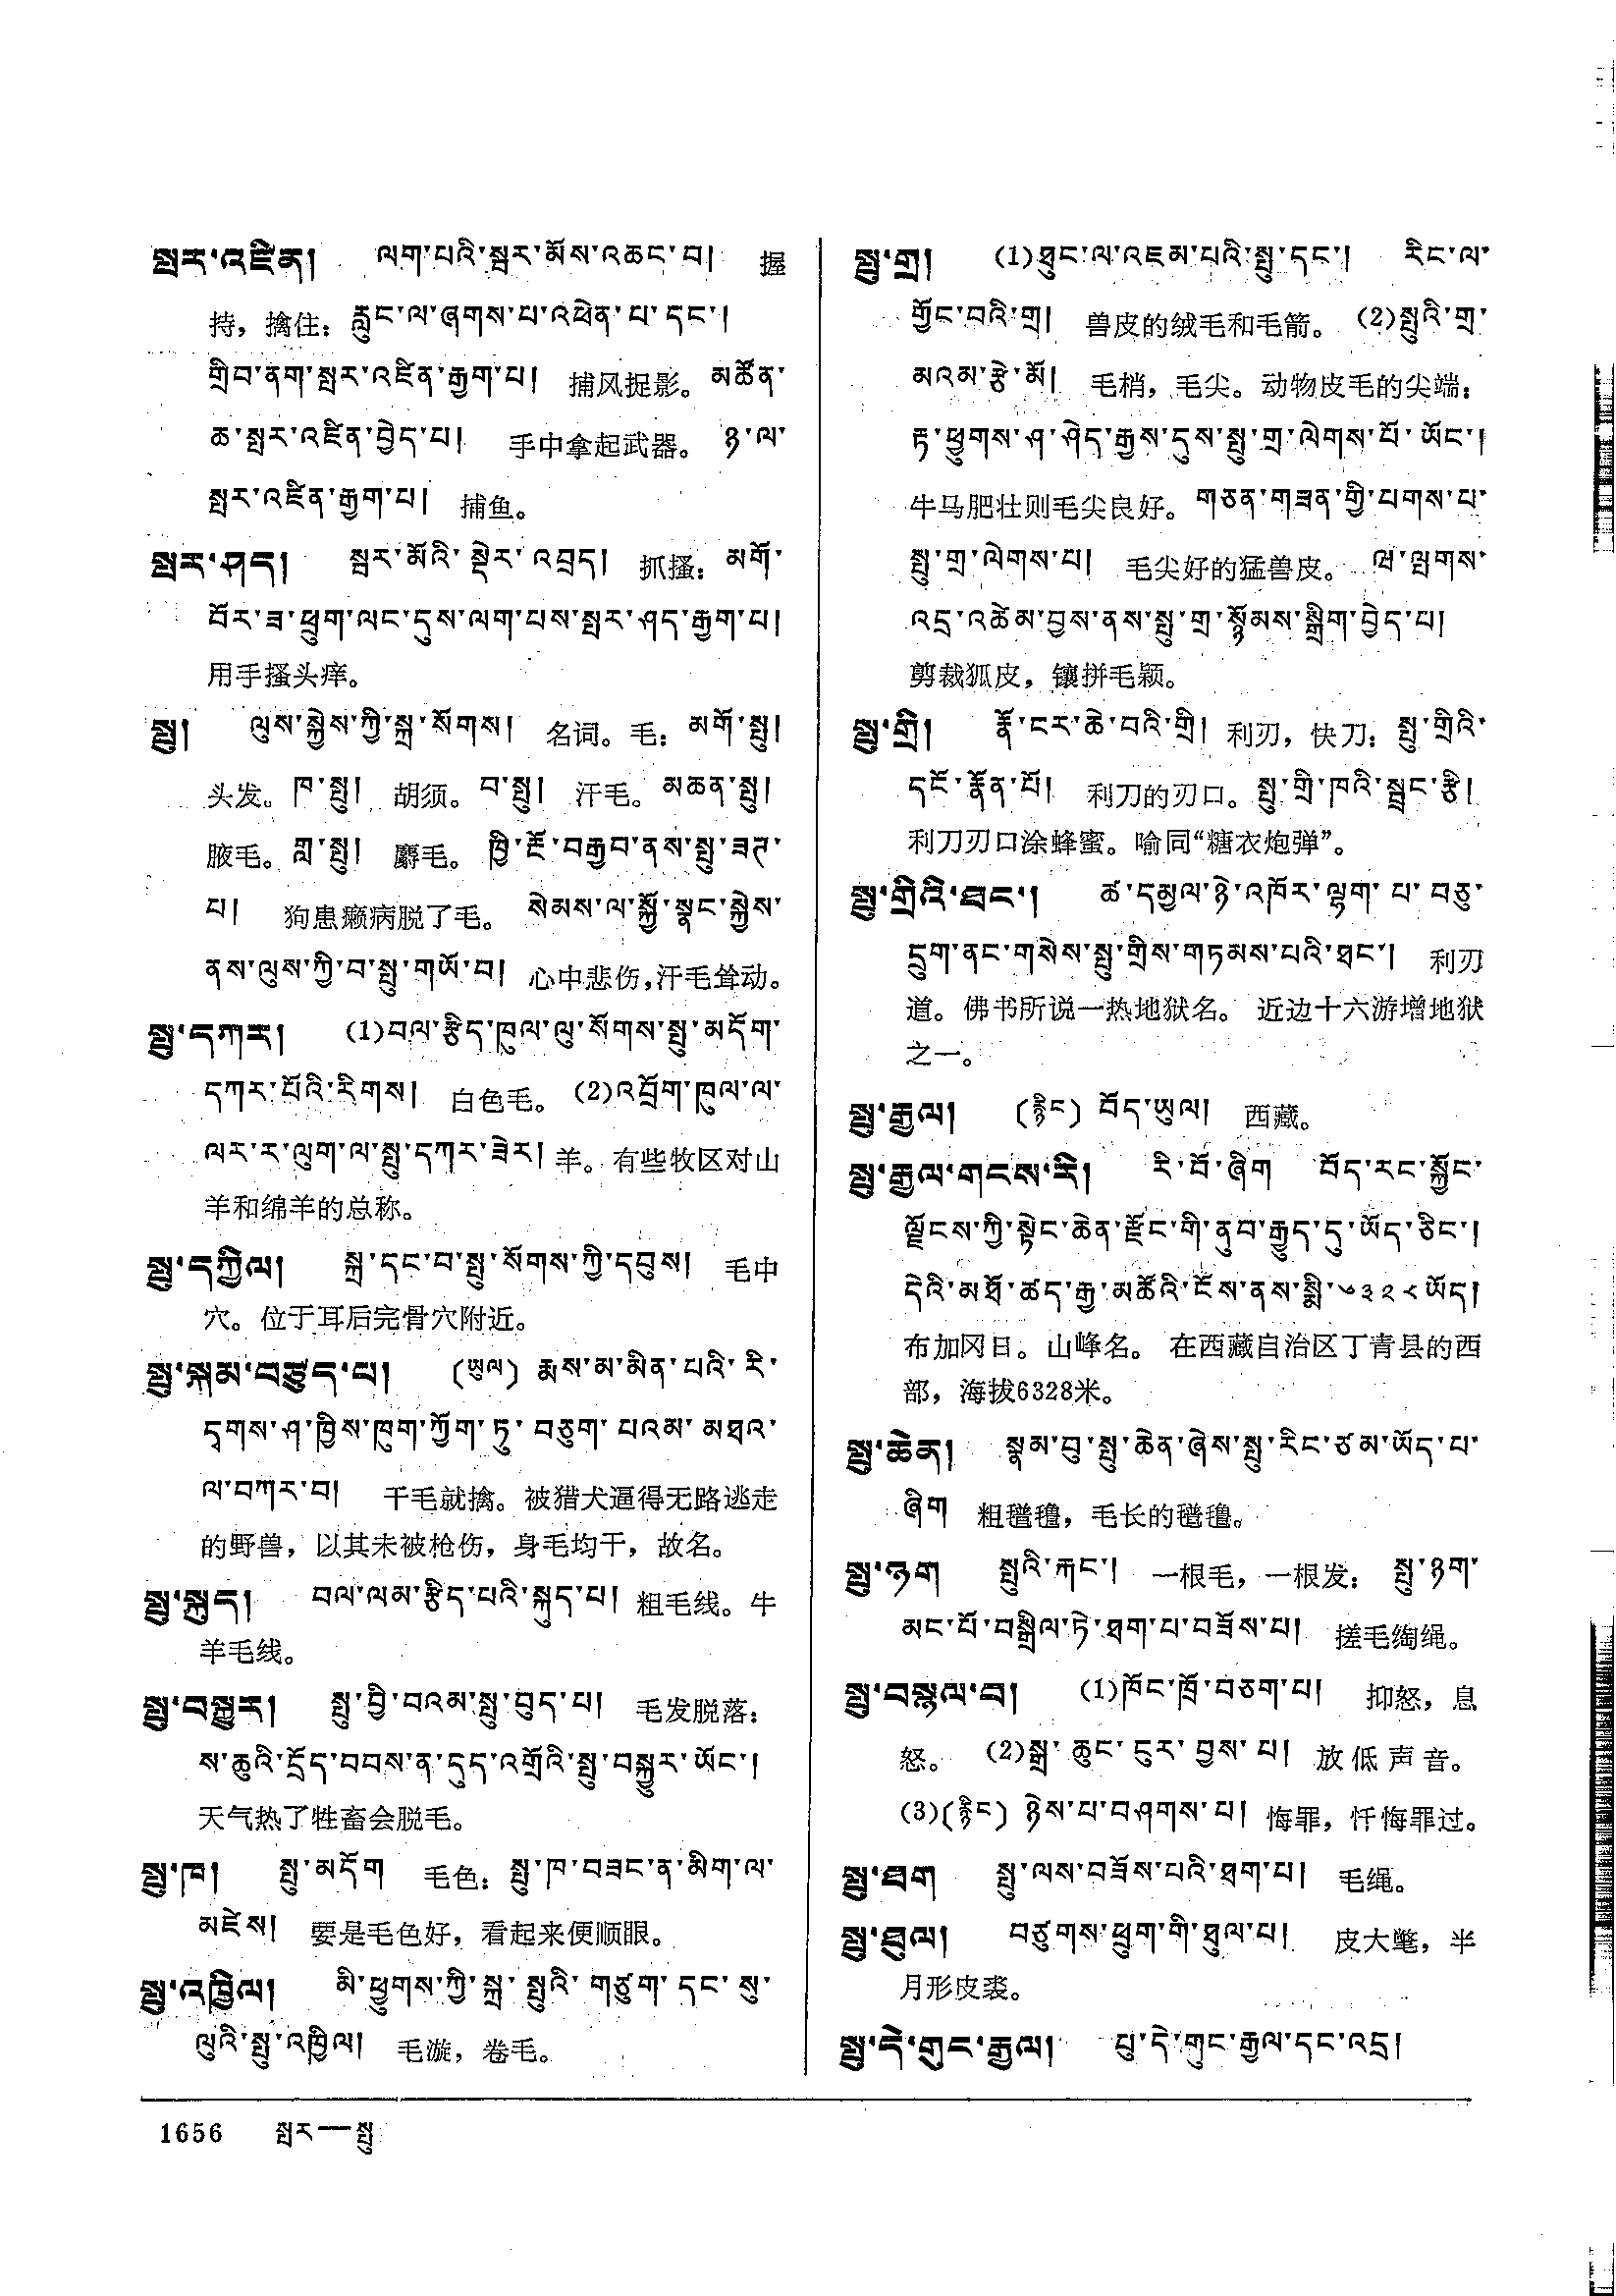 སྤར་འཛིན། ལག་པའི་སྦར་མོས་འཆང་བ། 握
持，擒住：རླུང་ལ་ཞགས་པ་འཕེན་པ་དང་།
གྲིབ་ནག་སྤར་འཛིན་རྒྱག་པ། 捕风捉影。མཚོན་
ཆ་སྤར་འཛིན་བྱེད་པ། 手中拿起武器。ཉ་ལ་
སྤར་འཛིན་རྒྱག་པ། 捕鱼。
སྤར་ཤད། སྦར་མོའི་སྡེར་འབྲད། 抓搔：མགོ་
བོར་ཟ་ཕྲུག་ལང་དུས་ལག་པས་སྤར་ཤད་རྒྱག་པ།
用手搔头痒。
སྤུ། ལུས་སྐྱེས་ཀྱི་སྐྲ་སོགས། 名词。毛：མགོ་སྤུ།
头发。ཁ་སྤུ། 胡须。བ་སྤུ། 汗毛。མཆན་སྤུ།
腋毛。གླ་སྤུ། 麝毛。ཁྱི་རྔོ་བརྒྱབ་ནས་སྤུ་ཟད་
པ། 狗患癞病脱了毛。སེམས་ལ་སྐྱོ་སྣང་སྐྱེས་
ནས་ལུས་ཀྱི་བ་སྤུ་གཡོ་བ། 心中悲伤，汗毛耸动。
སྤུ་དཀར། (1)བལ་རྩིད་ཁུལ་ལུ་སོགས་སྤུ་མདོག་
དཀར་པོའི་རིགས། 白色毛。(2)འབྲོག་ཁུལ་ལ་
ལར་ར་ལུག་ལ་སྤུ་དཀར་ཟེར། 羊。有些牧区对山
羊和绵羊的总称。
སྤུ་དཀྱིལ། སྐྲ་དང་བ་སྤུ་སོགས་ཀྱི་དབུས། 毛中
穴。位于耳后完骨穴附近。
སྤུ་སྐམ་བཟུང་བ། (ཡུལ) རྨས་མ་མིན་པའི་རི་
དྭགས་ཤ་ཁྱིས་ཁུག་ཀྱོག་ཏུ་བཅུག་པའམ་མཐའ་
ལ་བཀར་བ། 干毛就擒。被猎犬逼得无路逃走
的野兽，以其未被枪伤，身毛均干，故名。
སྤུ་སྐུད། བལ་ལམ་རྩིད་པའི་སྐུད་པ། 粗毛线。牛
羊毛线。
སྤུ་བསྐྱུར། སྤུ་བྱི་བའམ་སྤུ་བུད་པ། 毛发脱落：
ས་ཆུའི་དྲོད་བབས་ན་དུད་འགྲོའི་སྤུ་བསྐྱུར་ཡོང་།
天气热了牲畜会脱毛。
སྤུ་ཁ། སྤུ་མདོག 毛色：སྤུ་ཁ་བཟང་ན་མིག་ལ་
མཛེས། 要是毛色好，看起来便顺眼。
སྤུ་འཁྱིལ། མི་ཕྱུགས་ཀྱི་སྐྲ་སྤུའི་གཙུག་དང་སུ་
ལུའི་སྤུ་འཁྱིལ། 毛漩，卷毛。
སྤུ་གྲ། (1)ཐུང་ལ་འཇམ་པའི་སྤུ་དང་། རིང་ལ་
གྱོང་བའི་གྲ། 兽皮的绒毛和毛箭。(2)སྤུའི་གྲ་
མའམ་རྩེ་མོ། 毛梢，毛尖。动物皮毛的尖端：
རྟ་ཕྱུགས་ཤ་ཤེད་རྒྱས་དུས་སྤུ་གྲ་ལེགས་པོ་ཡོང་།
牛马肥壮则毛尖良好。གཅན་གཟན་གྱི་པགས་པ་
སྤུ་གྲ་ལེགས་པ། 毛尖好的猛兽皮。ཝ་ལྤགས་
འདྲ་འཚེམ་བྱས་ནས་སྤུ་གྲ་སྙོམས་སྒྲིག་བྱེད་པ།
剪裁狐皮，镶拼毛颖。
སྤུ་གྲི། རྣོ་ངར་ཆེ་བའི་གྲི། 利刃，快刀：སྤུ་གྲིའི་
དངོ་རྣོན་པོ། 利刀的刃口。སྤུ་གྲི་ཁའི་སྦྲང་རྩི།
利刀刃口涂蜂蜜。喻同“糖衣炮弹”。
སྤུ་གྲིའི་ཐང་། ཚ་དམྱལ་ཉེ་འཁོར་ལྷག་པ་བཅུ་
དྲུག་ནང་གསེས་སྤུ་གྲིས་གཏམས་པའི་ཐང་། 利刃
道。佛书所说一热地狱名。 近边十六游增地狱
之一。
སྤུ་རྒྱལ། (རྙིང) བོད་ཡུལ། 西藏。
སྤུ་རྒྱལ་གངས་རི། རི་བོ་ཞིག བོད་རང་སྐྱོང་
ལྗོངས་ཀྱི་སྟེང་ཆེན་རྫོང་གི་ནུབ་རྒྱུད་དུ་ཡོད་ཅིང་།
དེའི་མཐོ་ཚད་རྒྱ་མཚོའི་ངོས་ནས་སྨི་༦༣༢༨ཡོད།
布加冈日。山峰名。 在西藏自治区丁青县的西
部，海拔6328米。
སྤུ་ཆེན། སྣམ་བུ་སྤུ་ཆེན་ཞེས་སྤུ་རིང་ཙམ་ཡོད་པ་
ཞིག 粗氆氇，毛长的氆氇。
སྤུ་ཉག སྤུའི་རྐང་། 一根毛，一根发：སྤུ་ཉག་
མང་པོ་བསྒྲིལ་ཏེ་ཐག་པ་བཟོས་པ། 搓毛绹绳。
སྤུ་བསྙལ་བ། (1)ཁོང་ཁྲོ་བཅག་པ། 抑怒，息
怒。 (2)སྒྲ་ཆུང་ངུར་བྱས་པ། 放低声音。
(3)(རྙིང) ཉེས་པ་བཤགས་པ། 悔罪，忏悔罪过。
སྤུ་ཐག སྤུ་ལས་བཟོས་པའི་ཐག་པ། 毛绳。
སྤུ་ཐུལ། བཙུགས་ཕྲུག་གི་ཐུལ་པ། 皮大氅，半
月形皮裘。
སྤུ་དེ་གུང་རྒྱལ། པུ་དེ་གུང་རྒྱལ་དང་འདྲ།
1656 སྤར—སྤུ